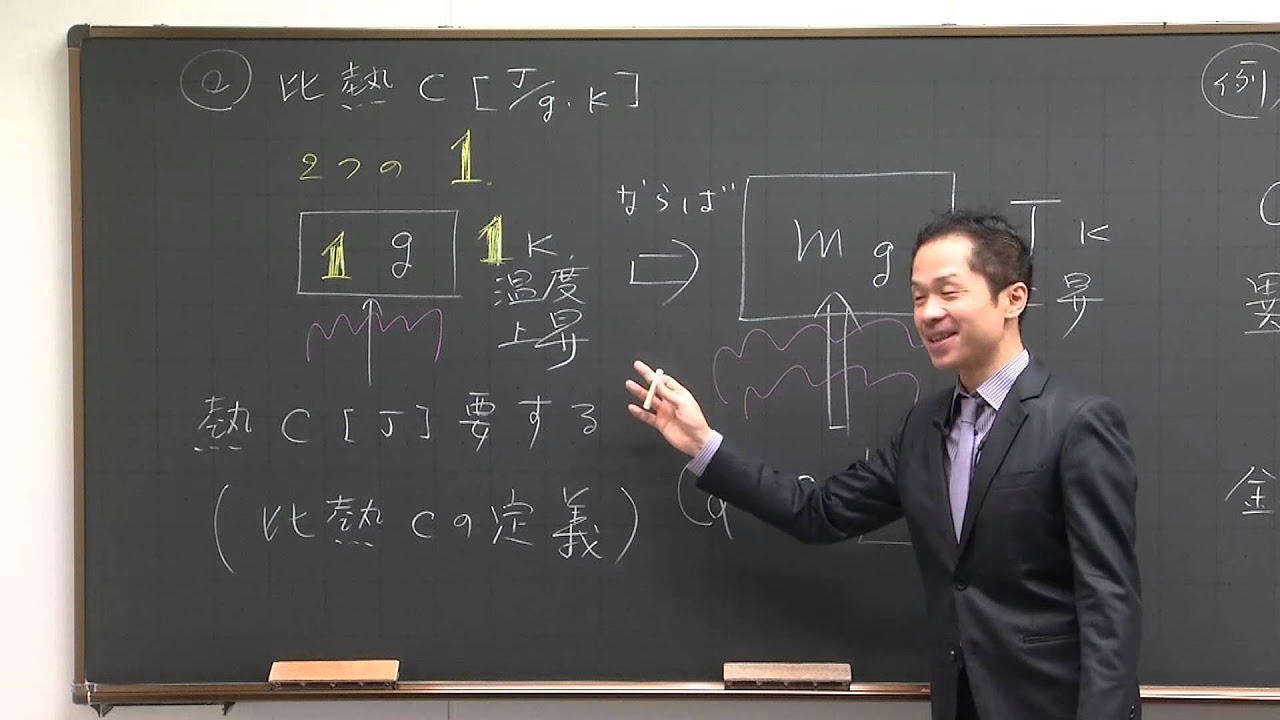 ② 比熱 C [J/g・K]
2つの 1
1 g 1 K
温度
上昇
熱 C [J] 要する
(比熱 Cの定義)
ならば
m g
K
昇
(Q
例
異
金